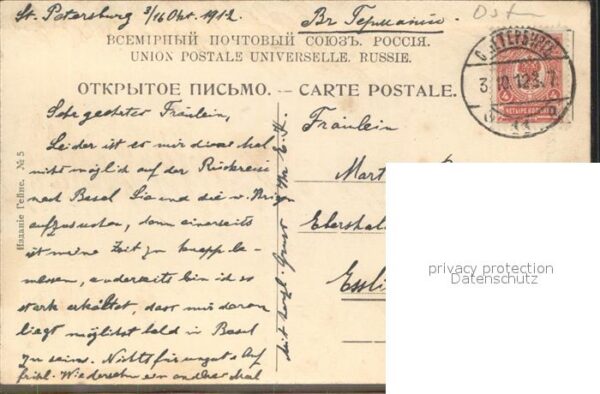 St. Petersburg 3/16 Okt. 1912. Въ Германiю.
Ost
ВСЕМIРНЫЙ ПОЧТОВЫЙ СОЮЗЪ. РОССIЯ.
UNION POSTALE UNIVERSELLE. RUSSIE.
ОТКРЫТОЕ ПИСЬМО. — CARTE POSTALE.
С.ПЕТЕРБУРГЪ
3.10.12
ЧЕТЫРЕ КОПѢЙКИ
Sehr geehrter Fräulein,
Leider ist es mir dieses Mal
nicht möglich auf der Rückreise
nach Basel Sie und die v.
aufzusuchen, denn einerseits
ist meine Zeit zu knapp be-
messen, anderseits bin ich so
stark erkältet, dass mir daran
liegt möglichst bald in Basel
zu sein. Nichts für ungut & Auf
fröhl. Wiedersehn ein anderes Mal
mit herzl. Gruss Ihr E. H.
Изданiе Гейне. № 5
Fräulein
Mart
Ebershal
Essli
privacy protection
Datenschutz